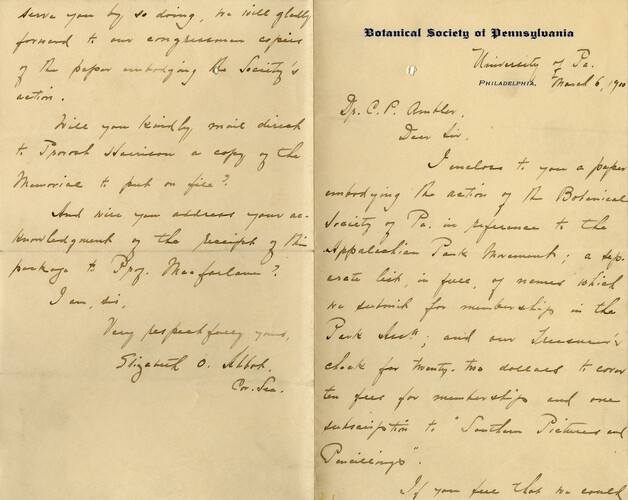 Botanical Society of Pennsylvania
University of Pa.
PHILADELPHIA, March 6, 1900
Dr. C. P. Ambler,
Dear Sir,
I enclose to you a paper
embodying the action of the Botanical
Society of Pa. in reference to the
Appalachian Park Movement; a sep-
arate list, in full, of names which
we submit for membership in the
Park Ass'n; and our Treasurer's
check for twenty-two dollars to cover
ten fees for membership and one
subscription to "Southern Pictures and
Pencillings".
If you feel that we could
serve you by so doing, we will gladly
forward to our congressmen copies
of the paper embodying the Society's
action.
Will you kindly mail direct
to Provost Harrison a copy of the
Memorial to put on file?
And will you address your ac-
knowledgment of the receipt of this
package to Prof. Macfarlane?
I am, sir,
Very respectfully yours,
Elizabeth O. Abbot,
Cor. Sec.